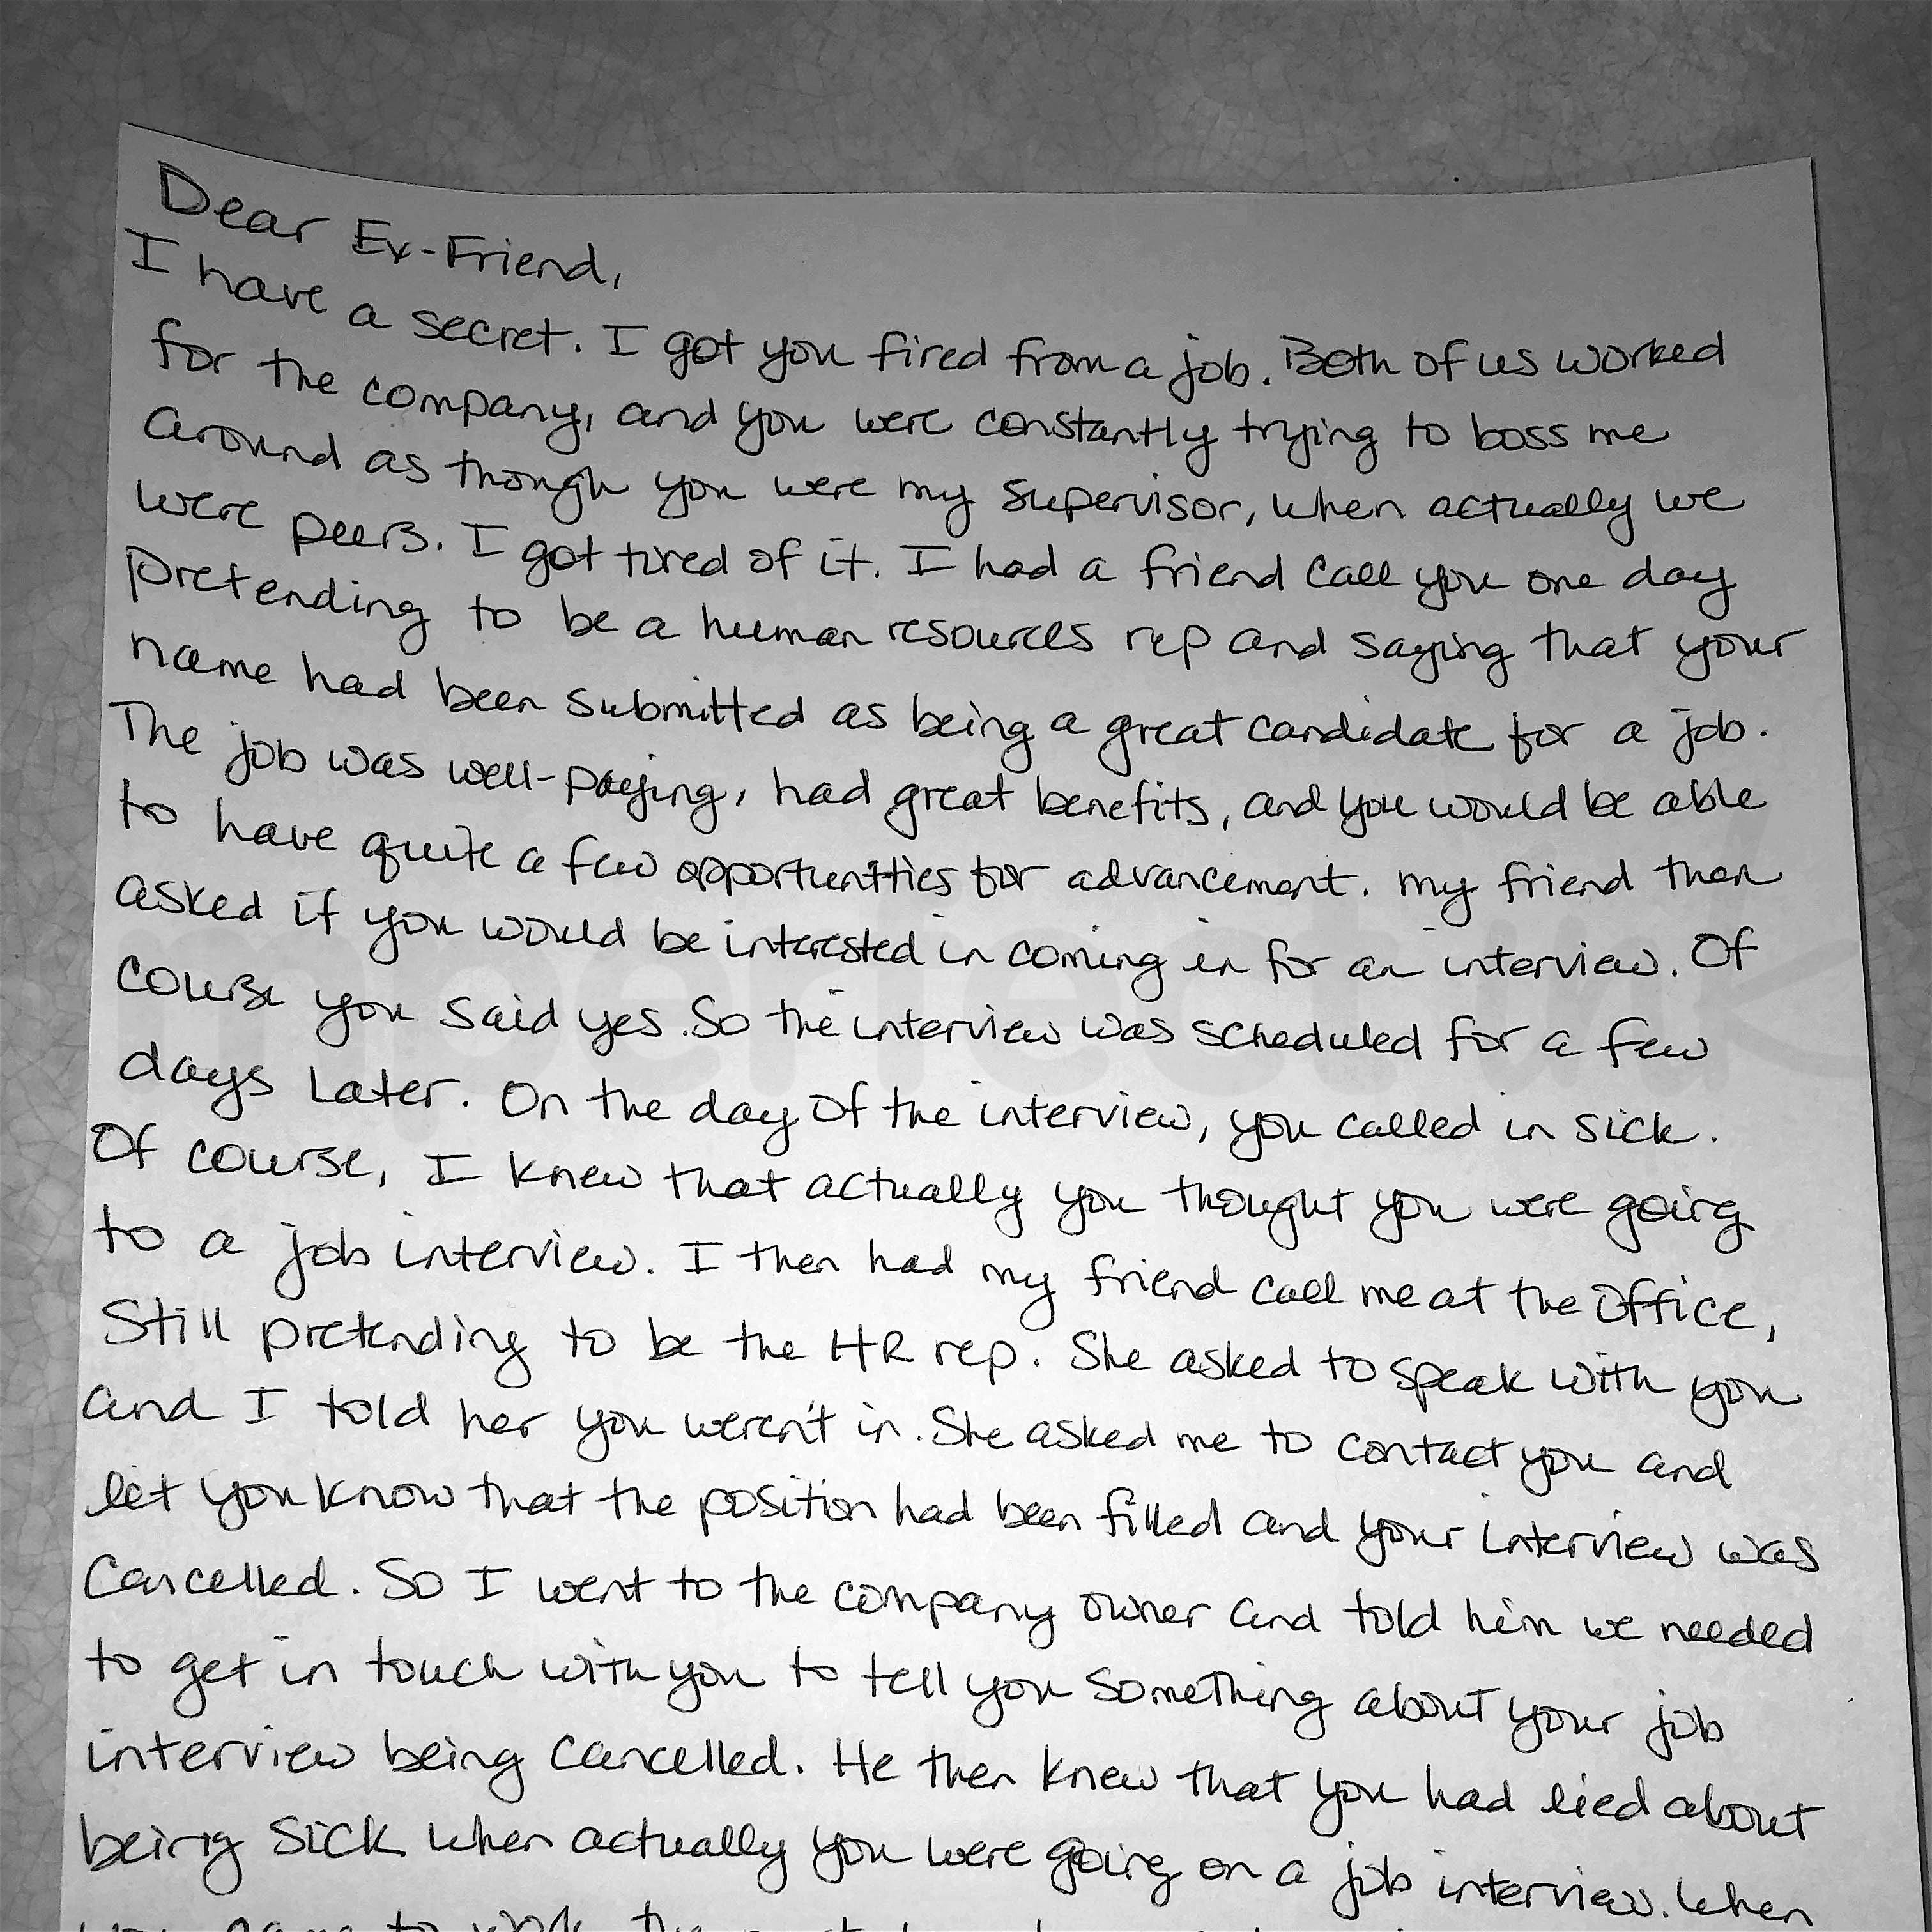 Dear Ex-Friend,
I have a secret. I got you fired from a job. Both of us worked
for the company, and you were constantly trying to boss me
around as though you were my supervisor, when actually we
were peers. I got tired of it. I had a friend call you one day
pretending to be a human resources rep and saying that your
name had been submitted as being a great candidate for a job.
The job was well-paying, had great benefits, and you would be able
to have quite a few opportunities for advancement. My friend then
asked if you would be interested in coming in for an interview. Of
course you said yes. So the interview was scheduled for a few
days later. On the day of the interview, you called in sick.
Of course, I knew that actually you thought you were going
to a job interview. I then had my friend call me at the office,
still pretending to be the HR rep. She asked to speak with you
and I told her you weren't in. She asked me to contact you and
let you know that the position had been filled and your interview was
cancelled. So I went to the company owner and told him we needed
to get in touch with you to tell you something about your job
interview being cancelled. He then knew that you had lied about
being sick when actually you were going on a job interview. When